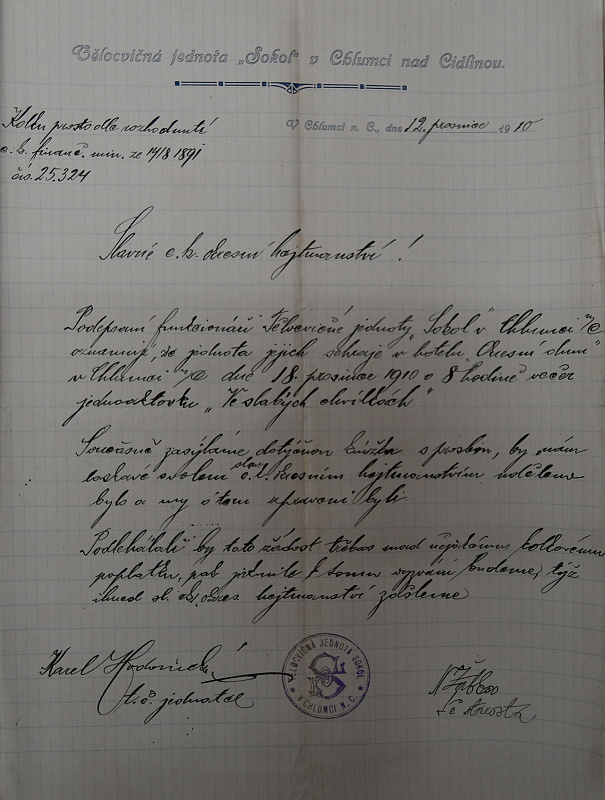 Tělocvičná jednota „Sokol“ v Chlumci nad Cidlinou.
V Chlumci n. C., dne 12. prosince 1910
Kolku prosto dle rozhodnutí
c. k. financ. min. ze 14/8 1891
čís. 25.324
Slavné c. k. okresní hejtmanství!
Podepsaní funkcionáři Tělocvičné jednoty „Sokol“ v Chlumci n/C
oznamují, že jednota jejich sehraje v hotelu „Okresní dům“
v Chlumci n/C dne 18. prosince 1910 o 8 hodině večer
jednoaktovku „Ve slabých chvilkách“
Současně zasýláme dotyčnou knížku s prosbou, by nám
laskavé svolení slav. c. k. okresním hejtmanstvím uděleno
bylo a my o tom zpraveni byli.
by tato žádost třebas snad nějakému kolkovému
poplatku, pak jakmile k tomu vyzváni budeme, týž
ihned sl. c. k. okres hejtmanství zašleme
Karel
t. č. jednatel
TĚLOCVIČNÁ JEDNOTA SOKOL
V CHLUMCI N. C.
t č starosta